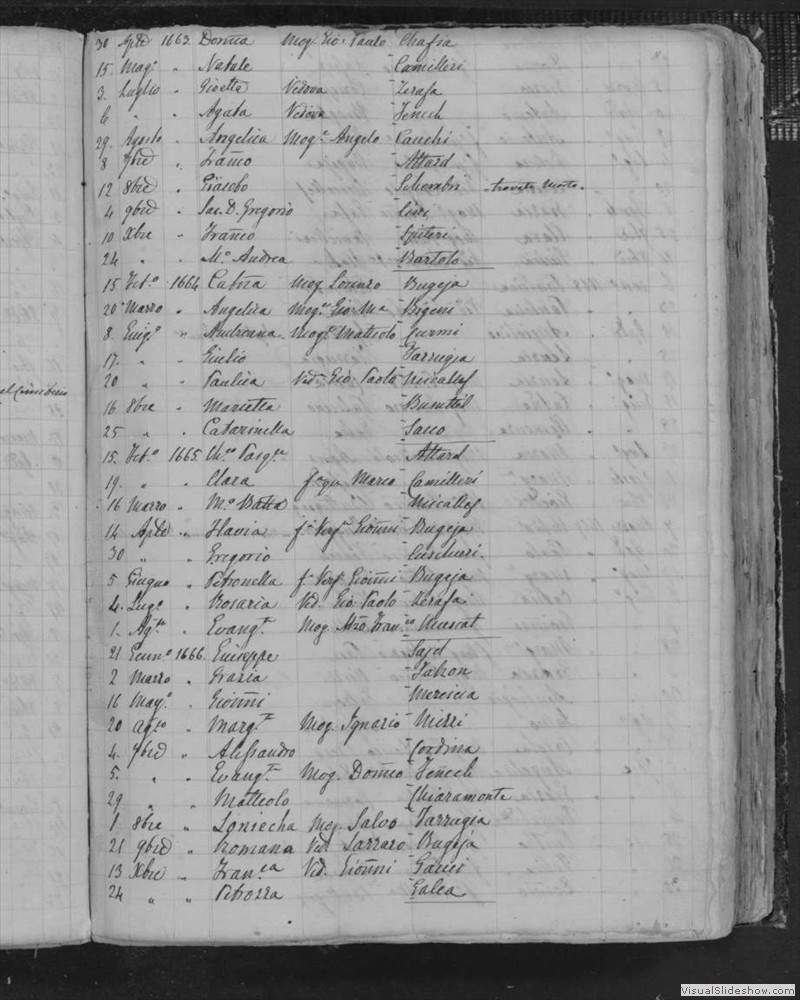 30 Aple 1663 Domca Mog. Gio: Paolo Chafia
15. Magº " Natale Camilleri
3. Luglio " Gioetta Vedova Zerafa
6 " " Agata Vedova Fenech
29. Agosto " Angelica Mogᵉ Angelo Cauchi
8 7bre " Franco Attard
12 8bre " Giacobo Schembri trovato morto.
4 9bre " Sac. D. Gregorio
10 Xbre " Franco Spiteri
24 " " Mº Andrea Bartolo
15 Febº 1664 Mog Lorenzo Bugeja
20 Marzo " Angelica Mogᵉ Gio Mª
8. Giugº " Mogᵉ Matteolo
17. " " Giulio Farrugia
20 " " Paulica Vedª Gio. Paolo Micallef
16 8bre " Marietta Busuttil
25 " " Catarinella
15. Febº 1665. Attard
19. " " Clara Marco Camilleri
16 Marzo " Mº Micallef
14 Aple " Flavia Gionni Bugeja
30 " " Gregorio
5 Giugno " Petronella Gionni Bugeja
4. Lugº " Rosaria Ved. Gio Paolo Zerafa
1. Agto " Evangᵗᵃ Mog Muscat
21 Gennº 1666. Giuseppe Sajd
2 Marzo " Grazia Falzon
16 Magº " Gionni
20 agto " Margᵗᵃ Mog. Ignazio
4. 7bre " Alessandro Cordina
5. " " Evangᵗᵃ Mog. Domco Fenech
29 " " Matteolo Chiaramonte
1 8bre " Mog. Salvo Farrugia
21 9bre " Romana Ved. Bugeja
13 Xbre " Franᶜᵃ Ved. Gionni Gauci
24 " " Galea
VisualSlideshow.com